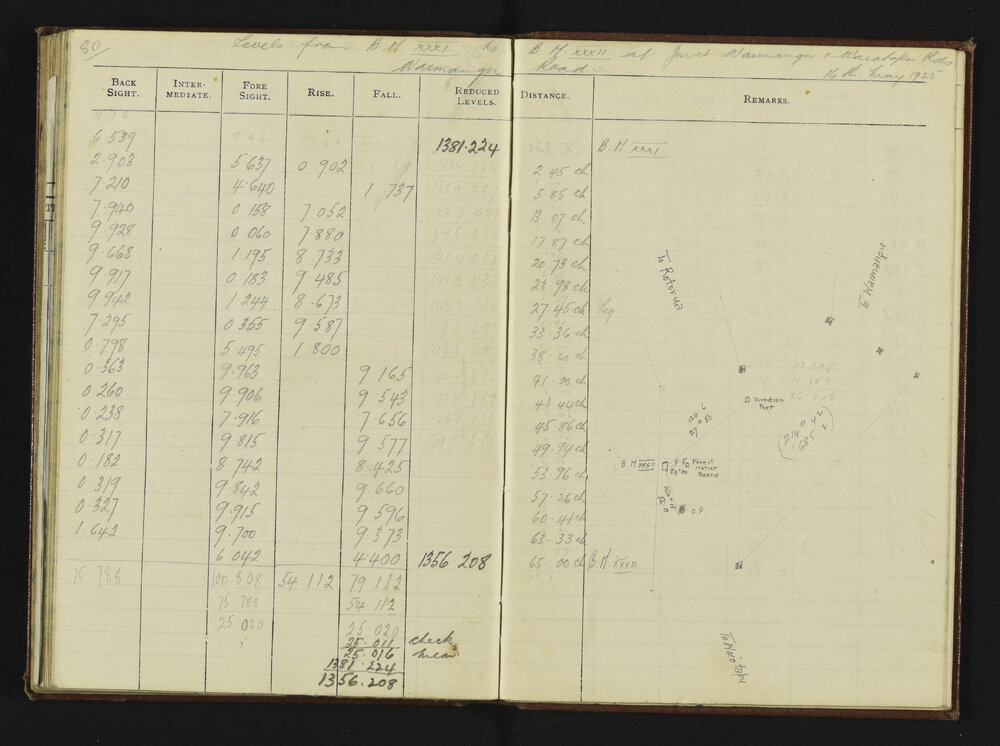 80/ Levels from B.M. XXXI to B.M. XXXII at Junct Waimangu & Waiotapu Rds
Waimangu Road. 16th May 1925
BACK SIGHT. INTER-MEDIATE. FORE SIGHT. RISE. FALL. REDUCED LEVELS. DISTANCE. REMARKS.
6.539 1381.224 B.M XXXI
2.903 5.637 0.902 2.45 ch
7.210 4.640 1.737 5.85 ch
7.940 0.158 7.052 13.07 ch
9.928 0.060 7.880 17.87 ch
9.668 1.195 8.733 20.73 ch
9.917 0.183 9.485 23.98 ch
9.942 1.244 8.673 27.45 ch Peg.
7.295 0.355 9.587 33.36 ch
0.798 5.495 1.800 38.60 ch
0.363 9.963 9.165 41.00 ch
0.260 9.906 9.543 43.44 ch
0.238 7.916 7.656 45.86 ch
0.317 9.815 9.577 49.94 ch
0.182 8.742 8.425 53.96 ch
0.319 9.842 9.660 57.26 ch
0.327 9.915 9.596 60.41 ch
1.642 9.700 9.373 63.33 ch
6.042 4.400 1356.208 65.00 ch B.M. XXXII
75.788 100.808 54.112 79.132
75.788 54.112
25.020 25.020
25.011 check
25.016 mean
1381.224
1356.208
To Rotorua
To Waimangu
Direction Post
B M XXXII
Forest Notice Board
O.P.
To Waiotapu